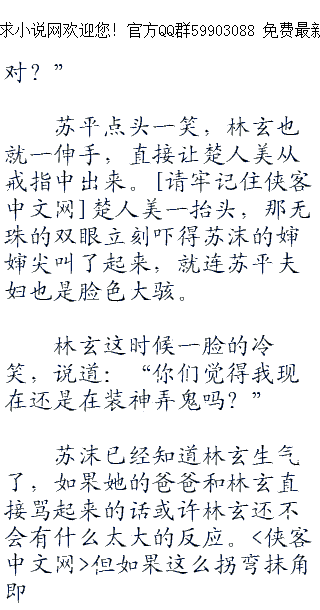 求小说网欢迎您！官方QQ群59903088 免费最新
对？”
苏平点头一笑，林玄也
就一伸手，直接让楚人美从
戒指中出来。[请牢记住侠客
中文网]楚人美一抬头，那无
珠的双眼立刻吓得苏沫的婶
婶尖叫了起来，就连苏平夫
妇也是脸色大骇。
林玄这时候一脸的冷
笑，说道：“你们觉得我现
在还是在装神弄鬼吗？”
苏沫已经知道林玄生气
了，如果她的爸爸和林玄直
接骂起来的话或许林玄还不
会有什么太大的反应。<侠客
中文网>但如果这么拐弯抹角
即